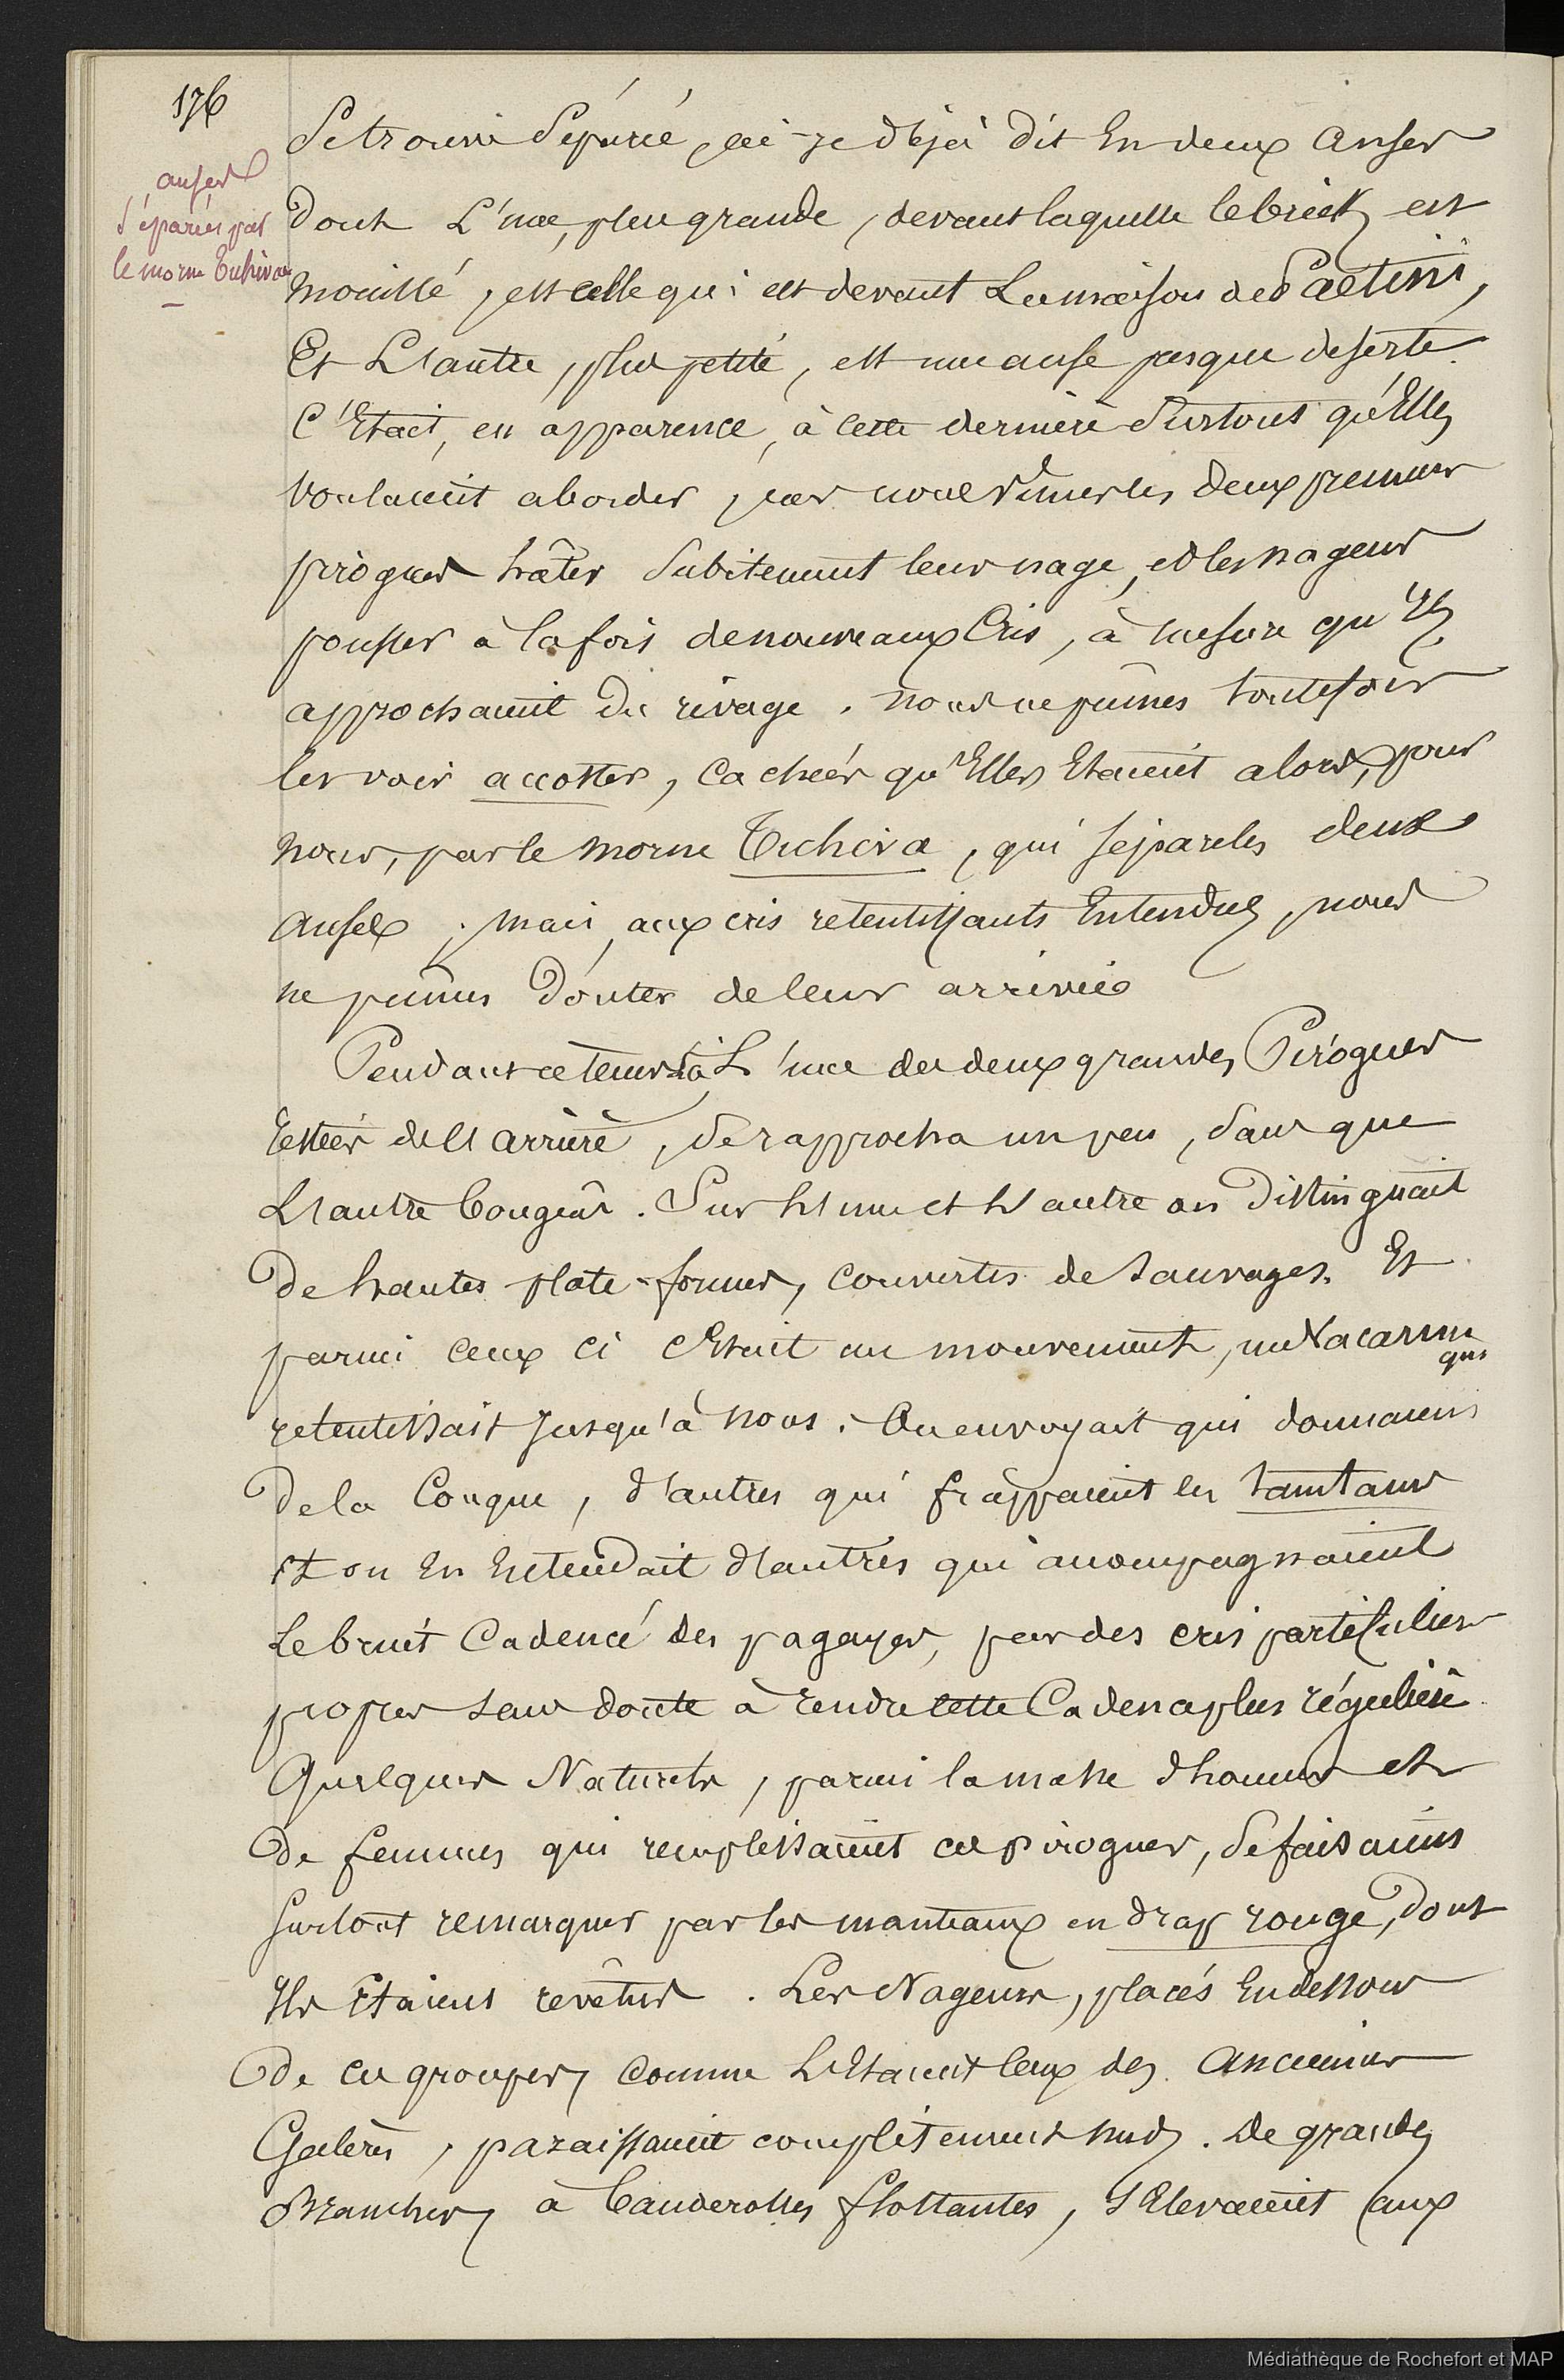 176
anses
séparées par
le morne Tuhiva
Se trouve Séparée, ai-je déjà dit En deux anses
dont L'une, plus grande, devant laquelle le brick est
mouillé, est celle qui est devant La maison de Paetini,
Et L'autre, plus petite, est une anse presque deserte.
C'Etait, en apparence, à cette dernière Surtout qu'Elles
voulaient aborder, car nous vîmes les deux premières
pirogues hâter Subitement leur nage, et les nageurs
pousser à la fois de nouveaux Cris, à mesure qu'Ils
approchaient du rivage. nous ne pûmes toutefois
les voir accoster, Cachées qu'Elles Etaient alors, pour
nous, par le morne Tuhiva, qui sépare les deux
anses; mais, aux cris retentissants Entendus, nous
ne pûmes douter de leur arrivée
Pendant ce tems là, L'une des deux grandes Pirogues
restées de l'arrière, se rapprocha un peu, sans que
L'autre bougeât. Sur l'une et l'autre on distinguait
de hautes plate-formes, couvertes de Sauvages. Et
parmi ceux ci c'Etait un mouvement, un vacarme
qui
retentissait jusqu'à nous. On en voyait qui donnaient
de la Conque, d'autres qui frappaient les tamtams
et on En Entendait d'autres qui accompagnaient
Le bruit Cadencé des pagayes, par des cris particuliers
propres sans doute à rendre cette Cadence plus régulière.
Quelques Naturels, parmi la masse d'hommes et
de femmes qui remplissaient ces pirogues, se faisaient
surtout remarquer par les manteaux en drap rouge, dont
Ils Etaient revêtus. Les Nageurs, placés En dessous
de ces groupes, comme L'Etaient ceux des anciennes
Galères, paraissaient complètement nuds. de grandes
Branches, à banderolles flottantes, S'Elevaient aux
Médiathèque de Rochefort et MAP